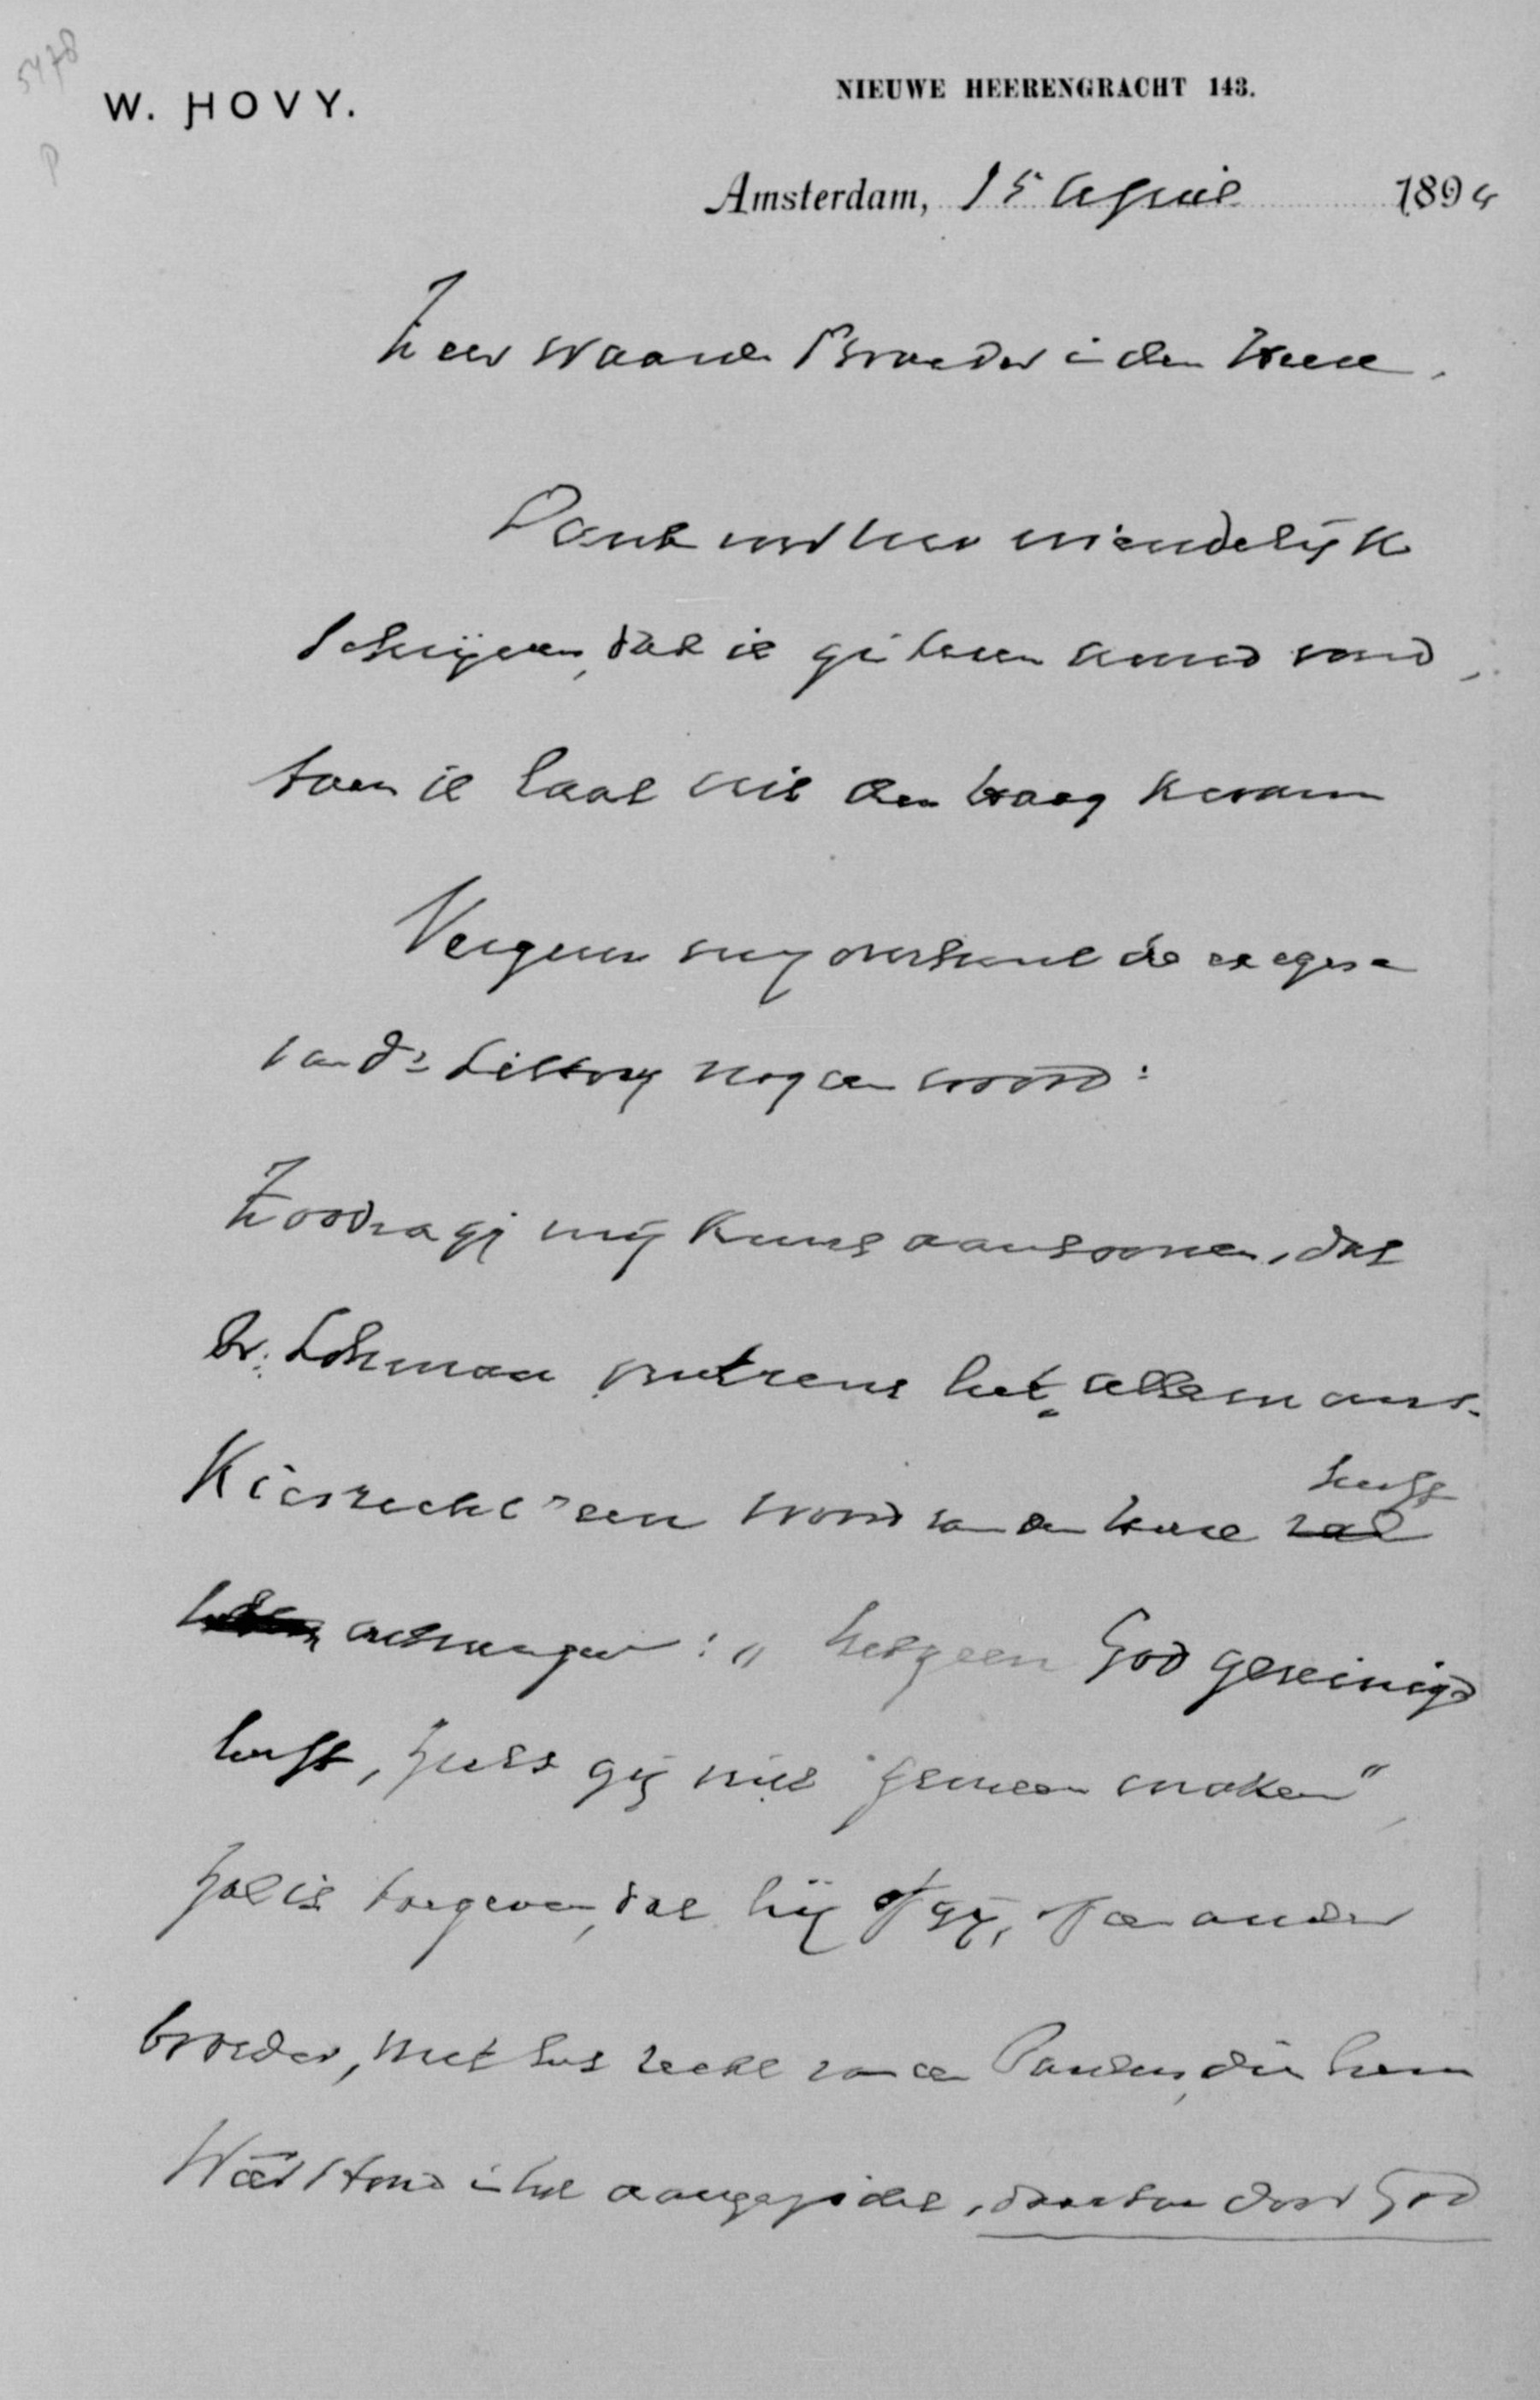 5478
W. HOVY.
P
NIEUWE HEERENGRACHT 143.
Amsterdam, 15 April 1894
Zeer waarde Broeder in den Heere.
Dank voor Uw vriendelijk
schrijven, dat ik gisteren avond vond,
toen ik laat uit den Haag kwam
Vergun mij omtrent de exegese
van Ds nog een woord:
Zoodra gij mij kunt aantoonen, dat
Br. Lohman omtrent het "allemans-
Kiesrecht" een woord van den Heere heeft
ontvangen: "hetgeen God gereinigd
heeft, zult gij niet gemeen maken"
zal ik toegeven, dat hij of gij, of een ander
broeder, met het recht van een Paulus, die hem
weerstond in het aangezicht, daartoe door God